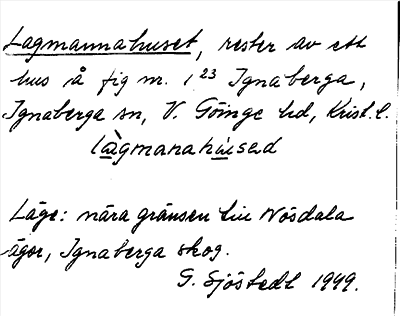 Lagmannahuset, rester av ett
hus å fig nr. 1 23 Ignaberga,
Ignaberga sn, V. Göinge hd, Krist. l.
làgmanahúsad
Läge: nära gränsen till Nösdala
ägor, Ignaberga skog.
G. Sjöstedt 1949.